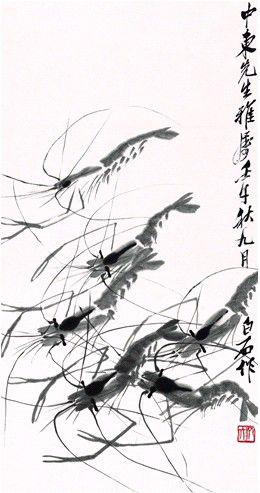 中東先生雅屬壬午秋九月
白石作